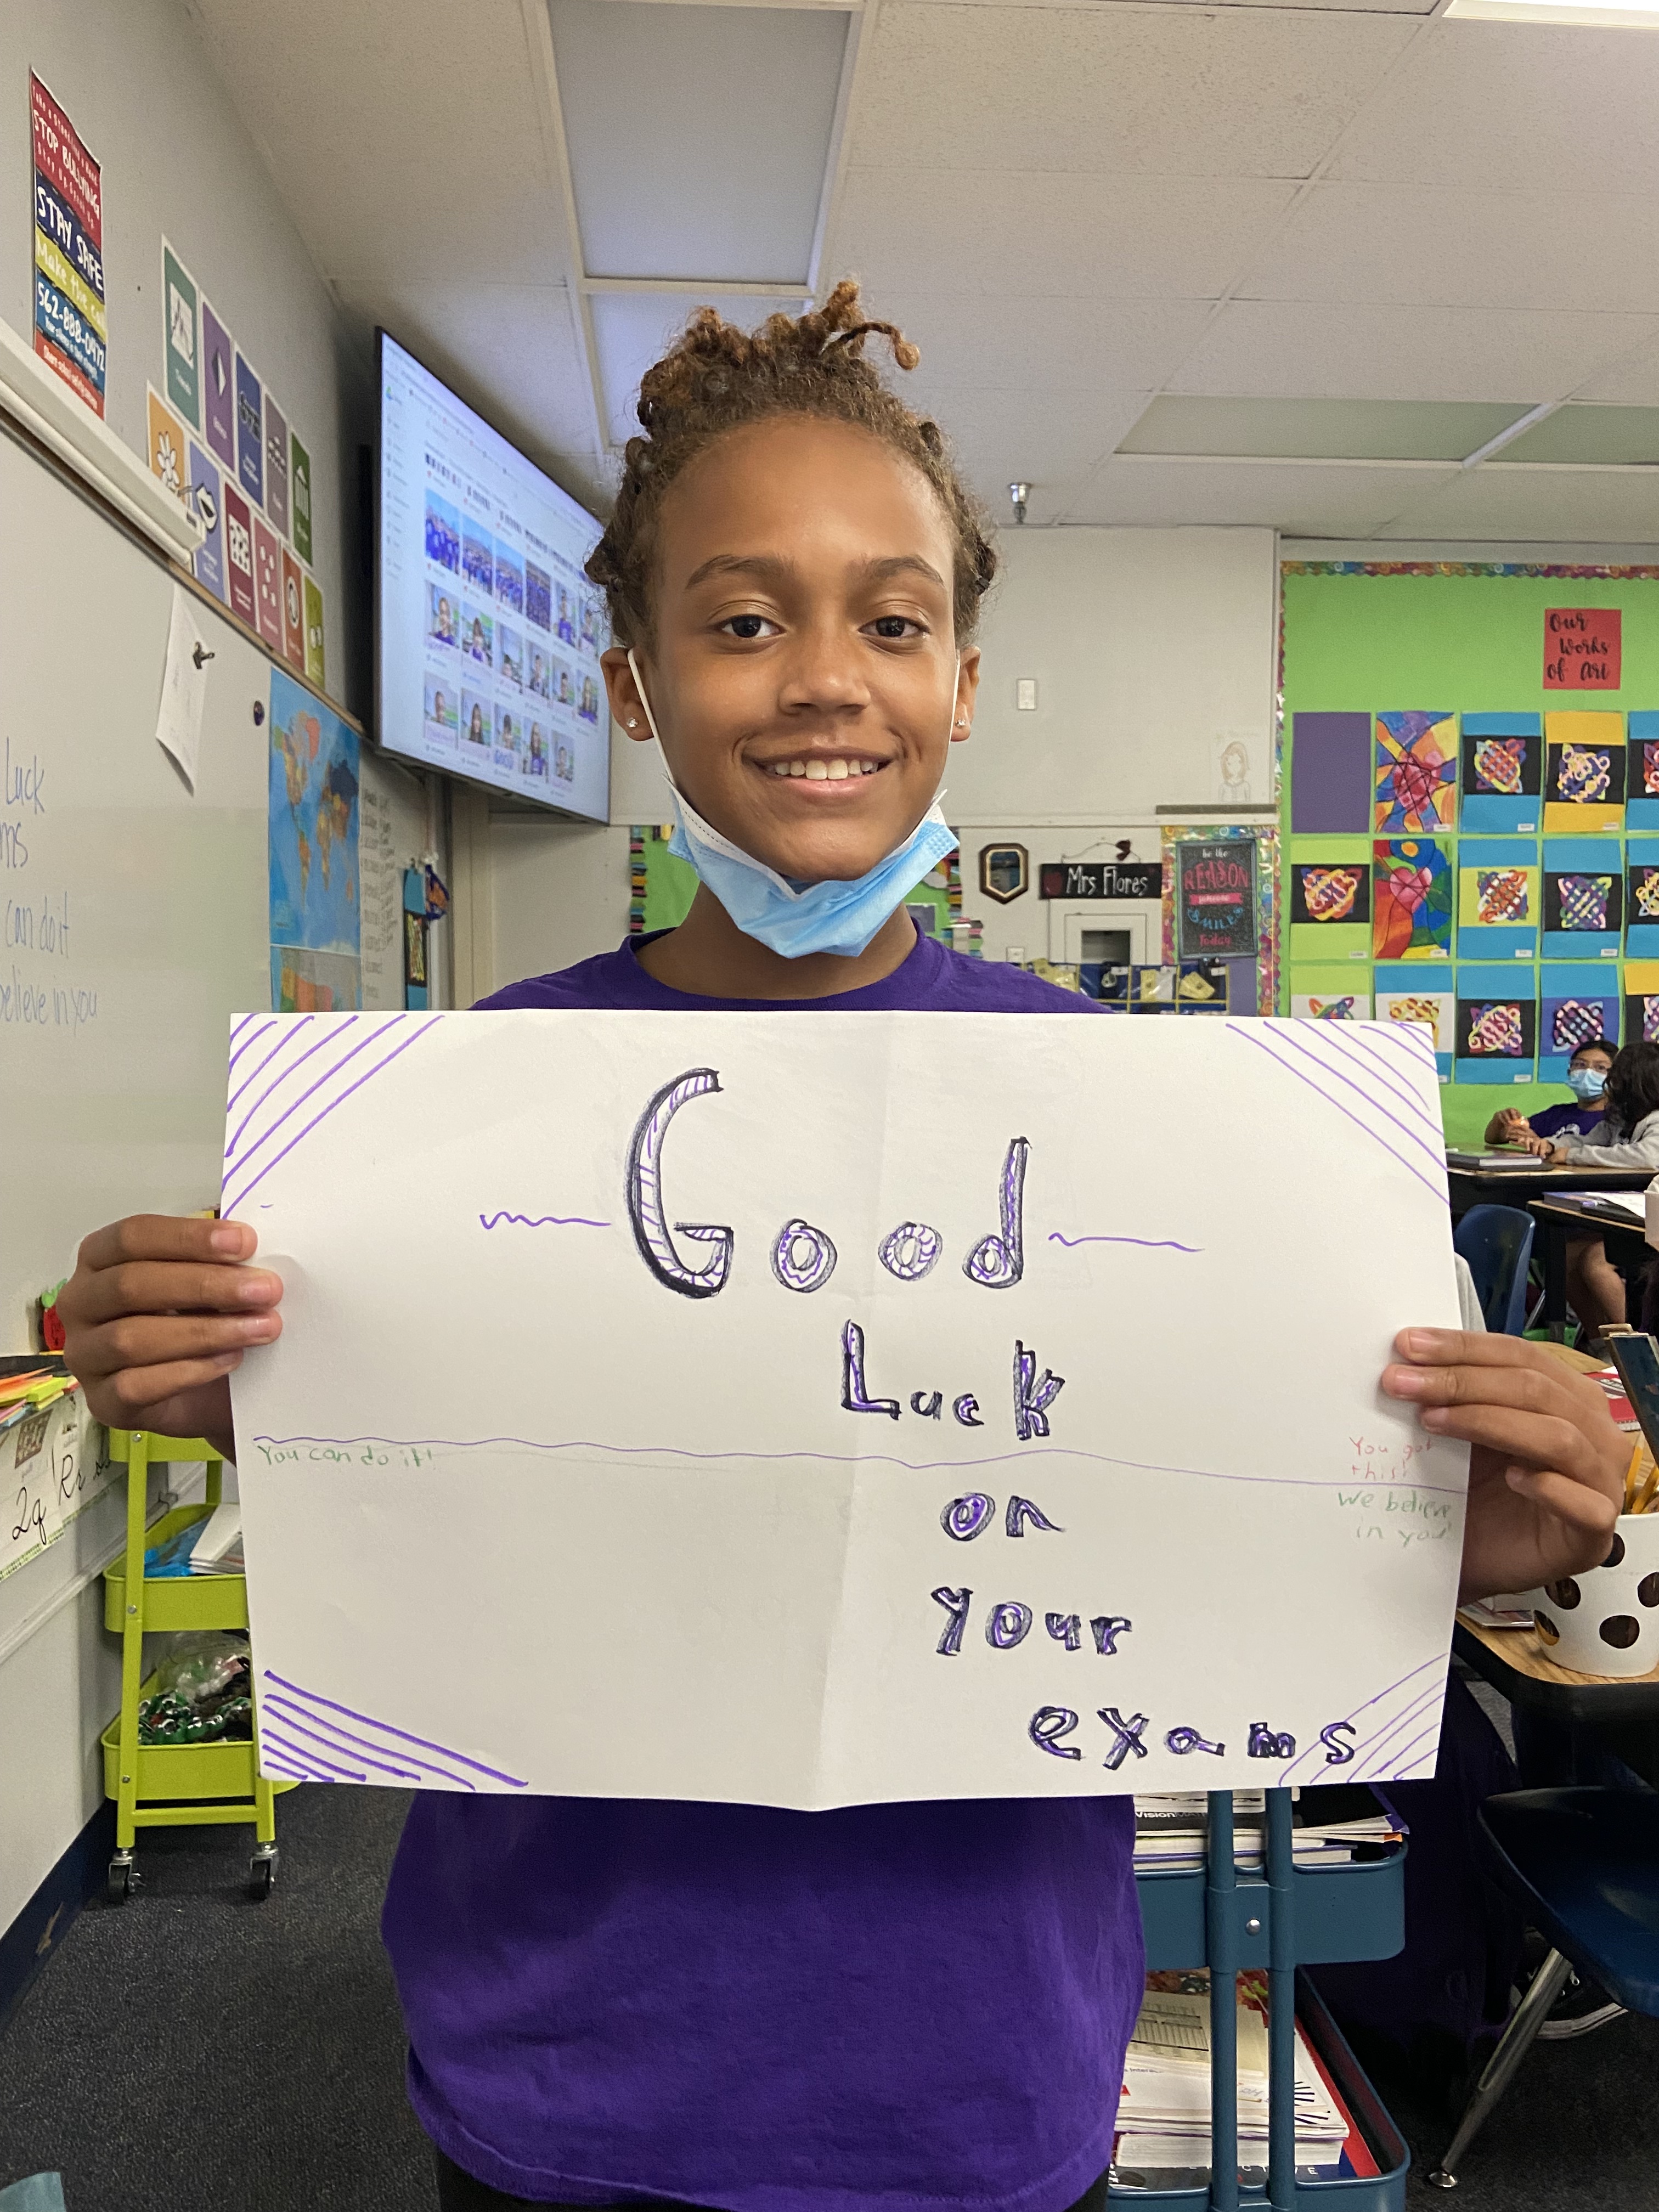 STOP BULLYING
STAY SAFE
Make the call
562-888-0972
Luck
can do it
believe in you
Our
Works
of Art
Mrs Flores
be the
REASON
SMILES
Today
Good
Luck
on
your
exams
You can do it!
You got
this!
We believe
in you!
Rr
2q